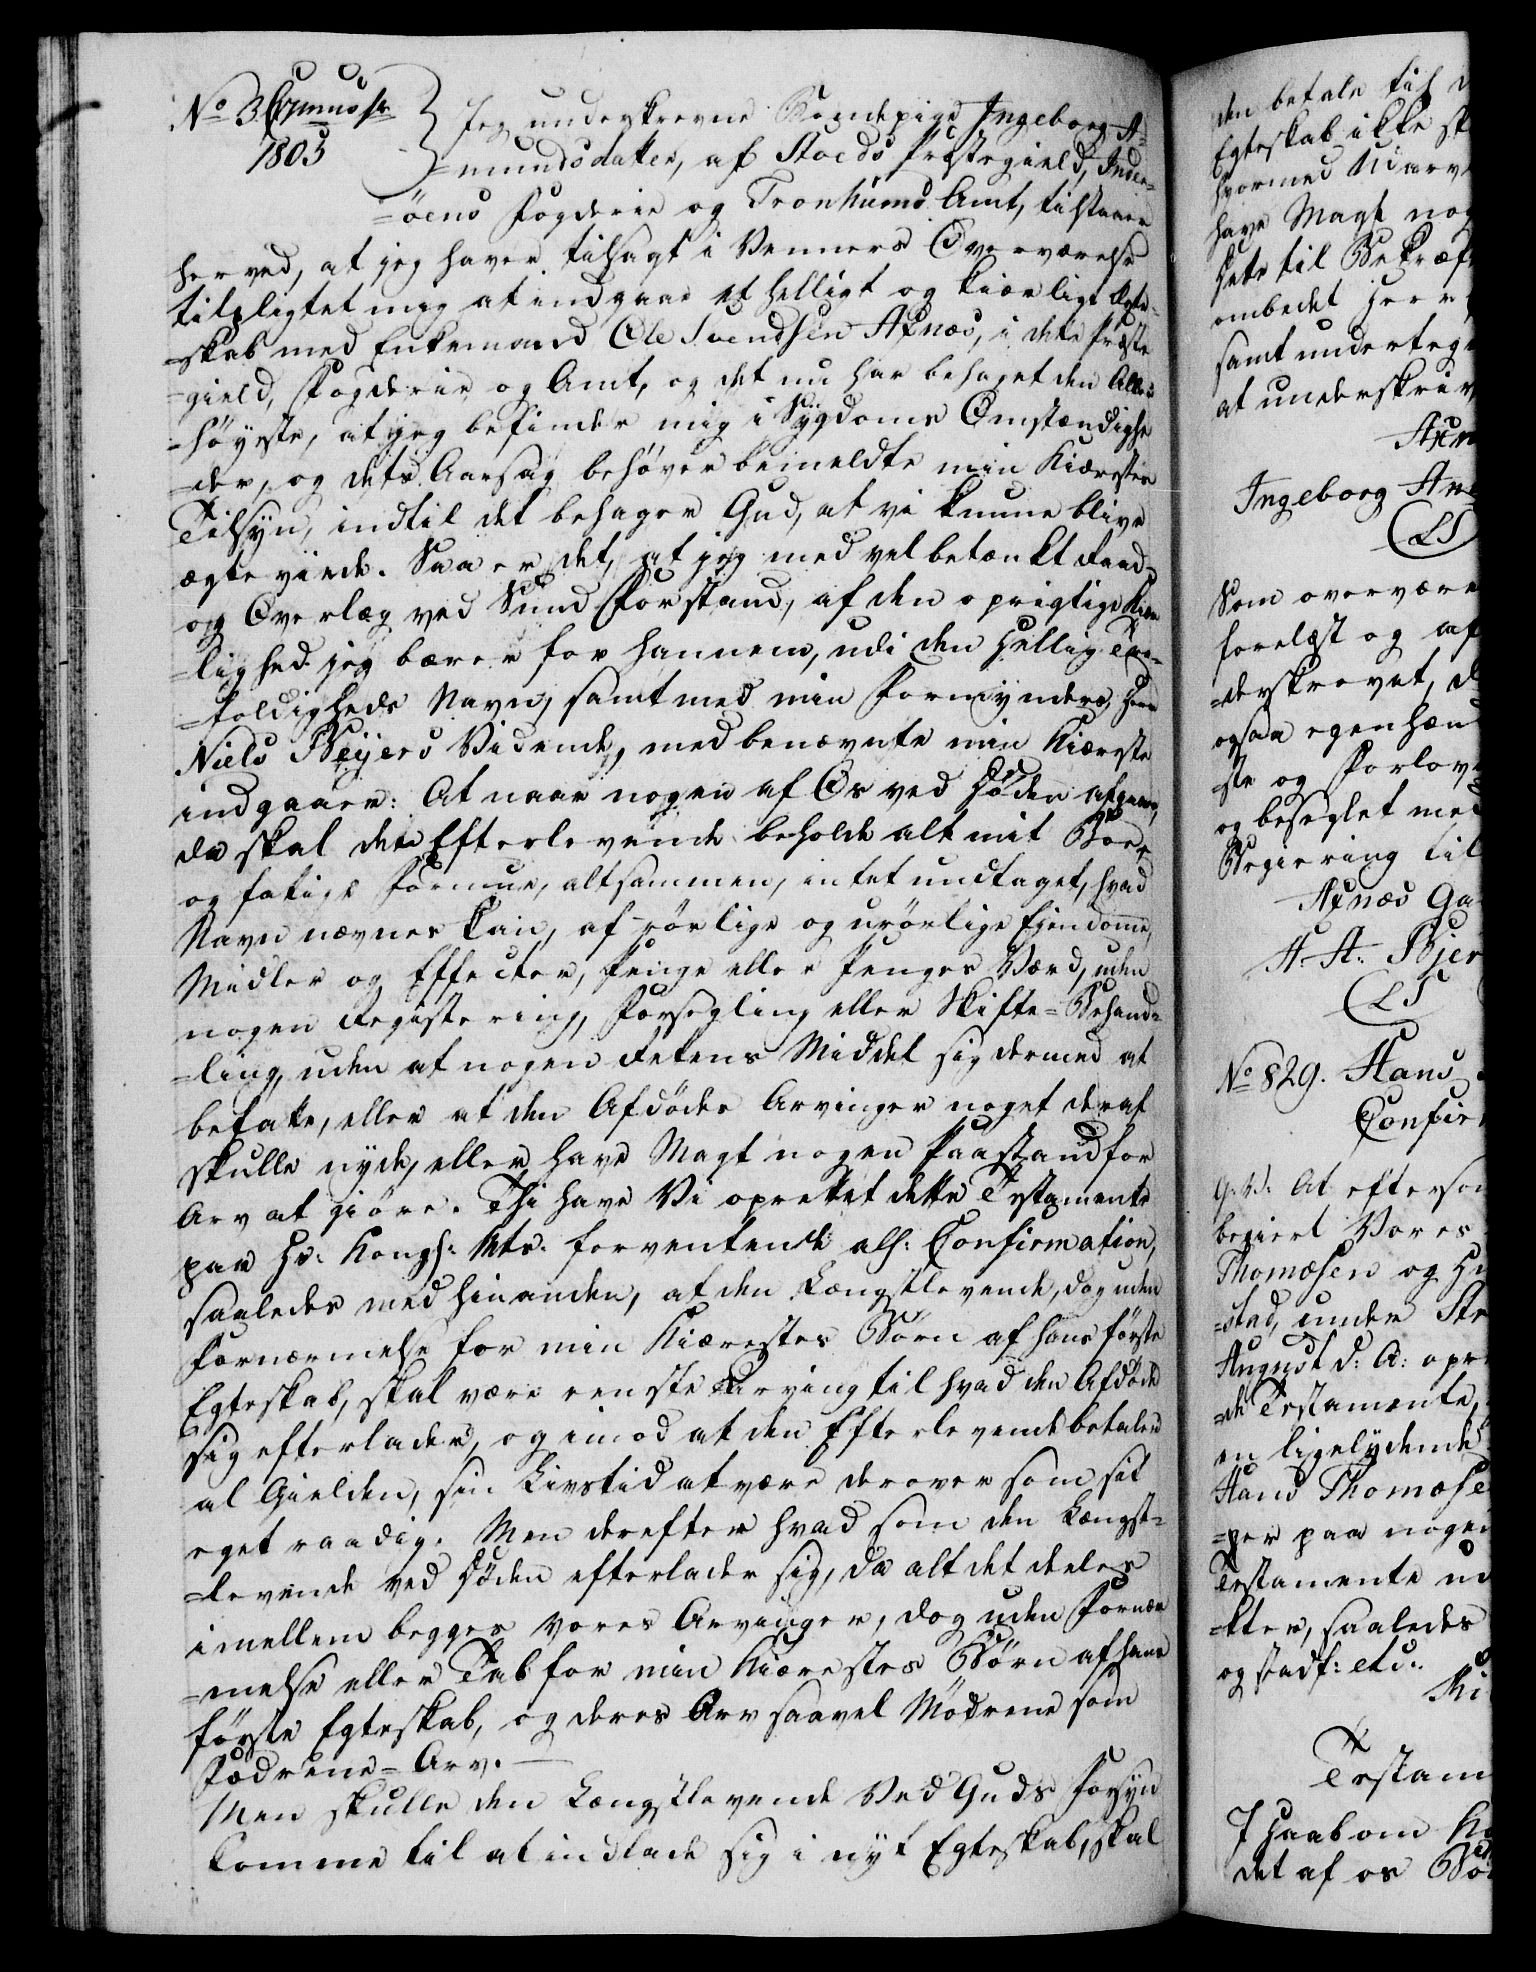 No 3 Grums sk
1803
Jeg underskrevne Kondepige Ingeborg A-
=mundsdatter, af Stoeds Præstegield, Inder-
=öens Fogderie og Tronhiems Amt, tilstaaer
herved, at jeg haver tilsagt i Venners Overværelse
tilpligtet mig at indgaae et helligt og kierligt Egte-
=skab med Enkemand Ole Svendsen Axnæs, i dete Præste
=gield, Fogderie og Amt, og det nu har behaget den Aller
=höyeste, at jeg befinder mig i Sÿgdoms Omstændighe
=der, og dets Aarsag behöver bemeldte min Kiærestes
Tilsyn, indtil det behager Gud, at vi kunne blive
ægteviede. Saa er det, at jeg med vel betænkt Raad
og Overlæg ved Sund Forstand, af den oprigtige Kier
=lighed jeg bærer for hannem, udi den Hellig Tre-
=foldigheds Navn, samt med min Formynders, Herr
Niels Beyers Vidende, med benævnte min Kiæreste
indgaaer: At naar nogen af Os ved Döden afgaaer,
da skal den Efterlevende beholde alt mit Boe
og fatige Formue, altsammen, intet undtaget, hvad
Navn nævnes kan, af rörlige og urörlige Ejendomme,
Midler og Effecter, Penge eller Penges Værd, uden
nogen Registering, Forsegling eller Skifte-Behand-
=ling, uden at nogen Retens Middel sig dermed at
befatte, eller at den Afdödes Arvinger noget deraf
skulle nyde, eller have Magt nogen Paastand for
Arv at giöre. Thi have Vi oprettet dette Testamente
paa Hs: Kongl: Mts: forventende alh: Confirmation,
saaledes med hinanden, at den Længstlevende, dog uden
Fornærmelse for min Kiærestes Börn af hans förste
Egteskab, skal være eeneste Arving til hvad den Afdöde
sig efterlader, og imod at den Efterlevende betaler
al Gielden, sin Livstid at være derover som sit
eget raadig. Men derefter hvad som den Længst-
=levende ved Döden efterlader sig, da alt det deeles
imellem begges vores Arvinger, dog uden Fornær
=melse eller Tab for min Kiærestes Börn af hans
förste Egteskab, og deres Arv saavel Mödrene som
Födrene-Arv.
Men skulle den Længstlevende Ved Guds Forsyn
komme til at indlade sig i nyt Egteskab, skal
den betale til
Egteskab ikke
hvormed Udarv
have Magt nog
hets til Bekræft
ombedet Herr
samt underteg
at underskriv
Axn
Ingeborg Am
(LS)
Som overvære
forelæst og af
=derskrevet, d
ogsaa egenhæn
=ste og Forlov
og beseglet med
Begiering til
Axnæs Ga
A. A. Bjer
(LS)
No 829. Hans
Confir
G: V: At eftersom
begiert Vores
Thomæsen og Hu
=stad, under Str
August d: A: opr
=de Testamente,
en ligelydende
Hans Thomæse
=per paa nogen
Testamente ud
=kter, saaledes
og stadf: etc:
Ki
Testam
I Haab om Ko
det af os Bö